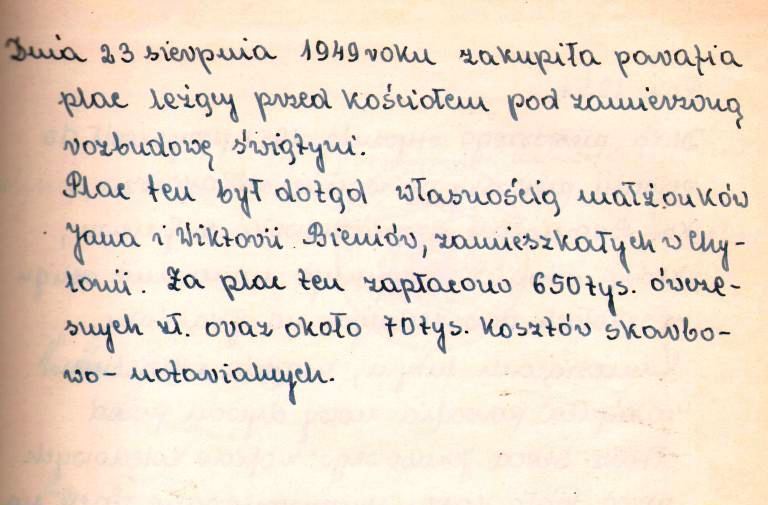 Dnia 23 sierpnia 1949 roku zakupiła parafia
plac leżący przed kościołem pod zamierzoną
rozbudowę świątyni.
Plac ten był dotąd własnością małżonków
Jana i Wiktorii Bieniów, zamieszkałych w Chy-
lonii. Za plac ten zapłacono 650 tys. ówcze-
snych zł. oraz około 70 tys. kosztów skarbo-
wo- notarialnych.